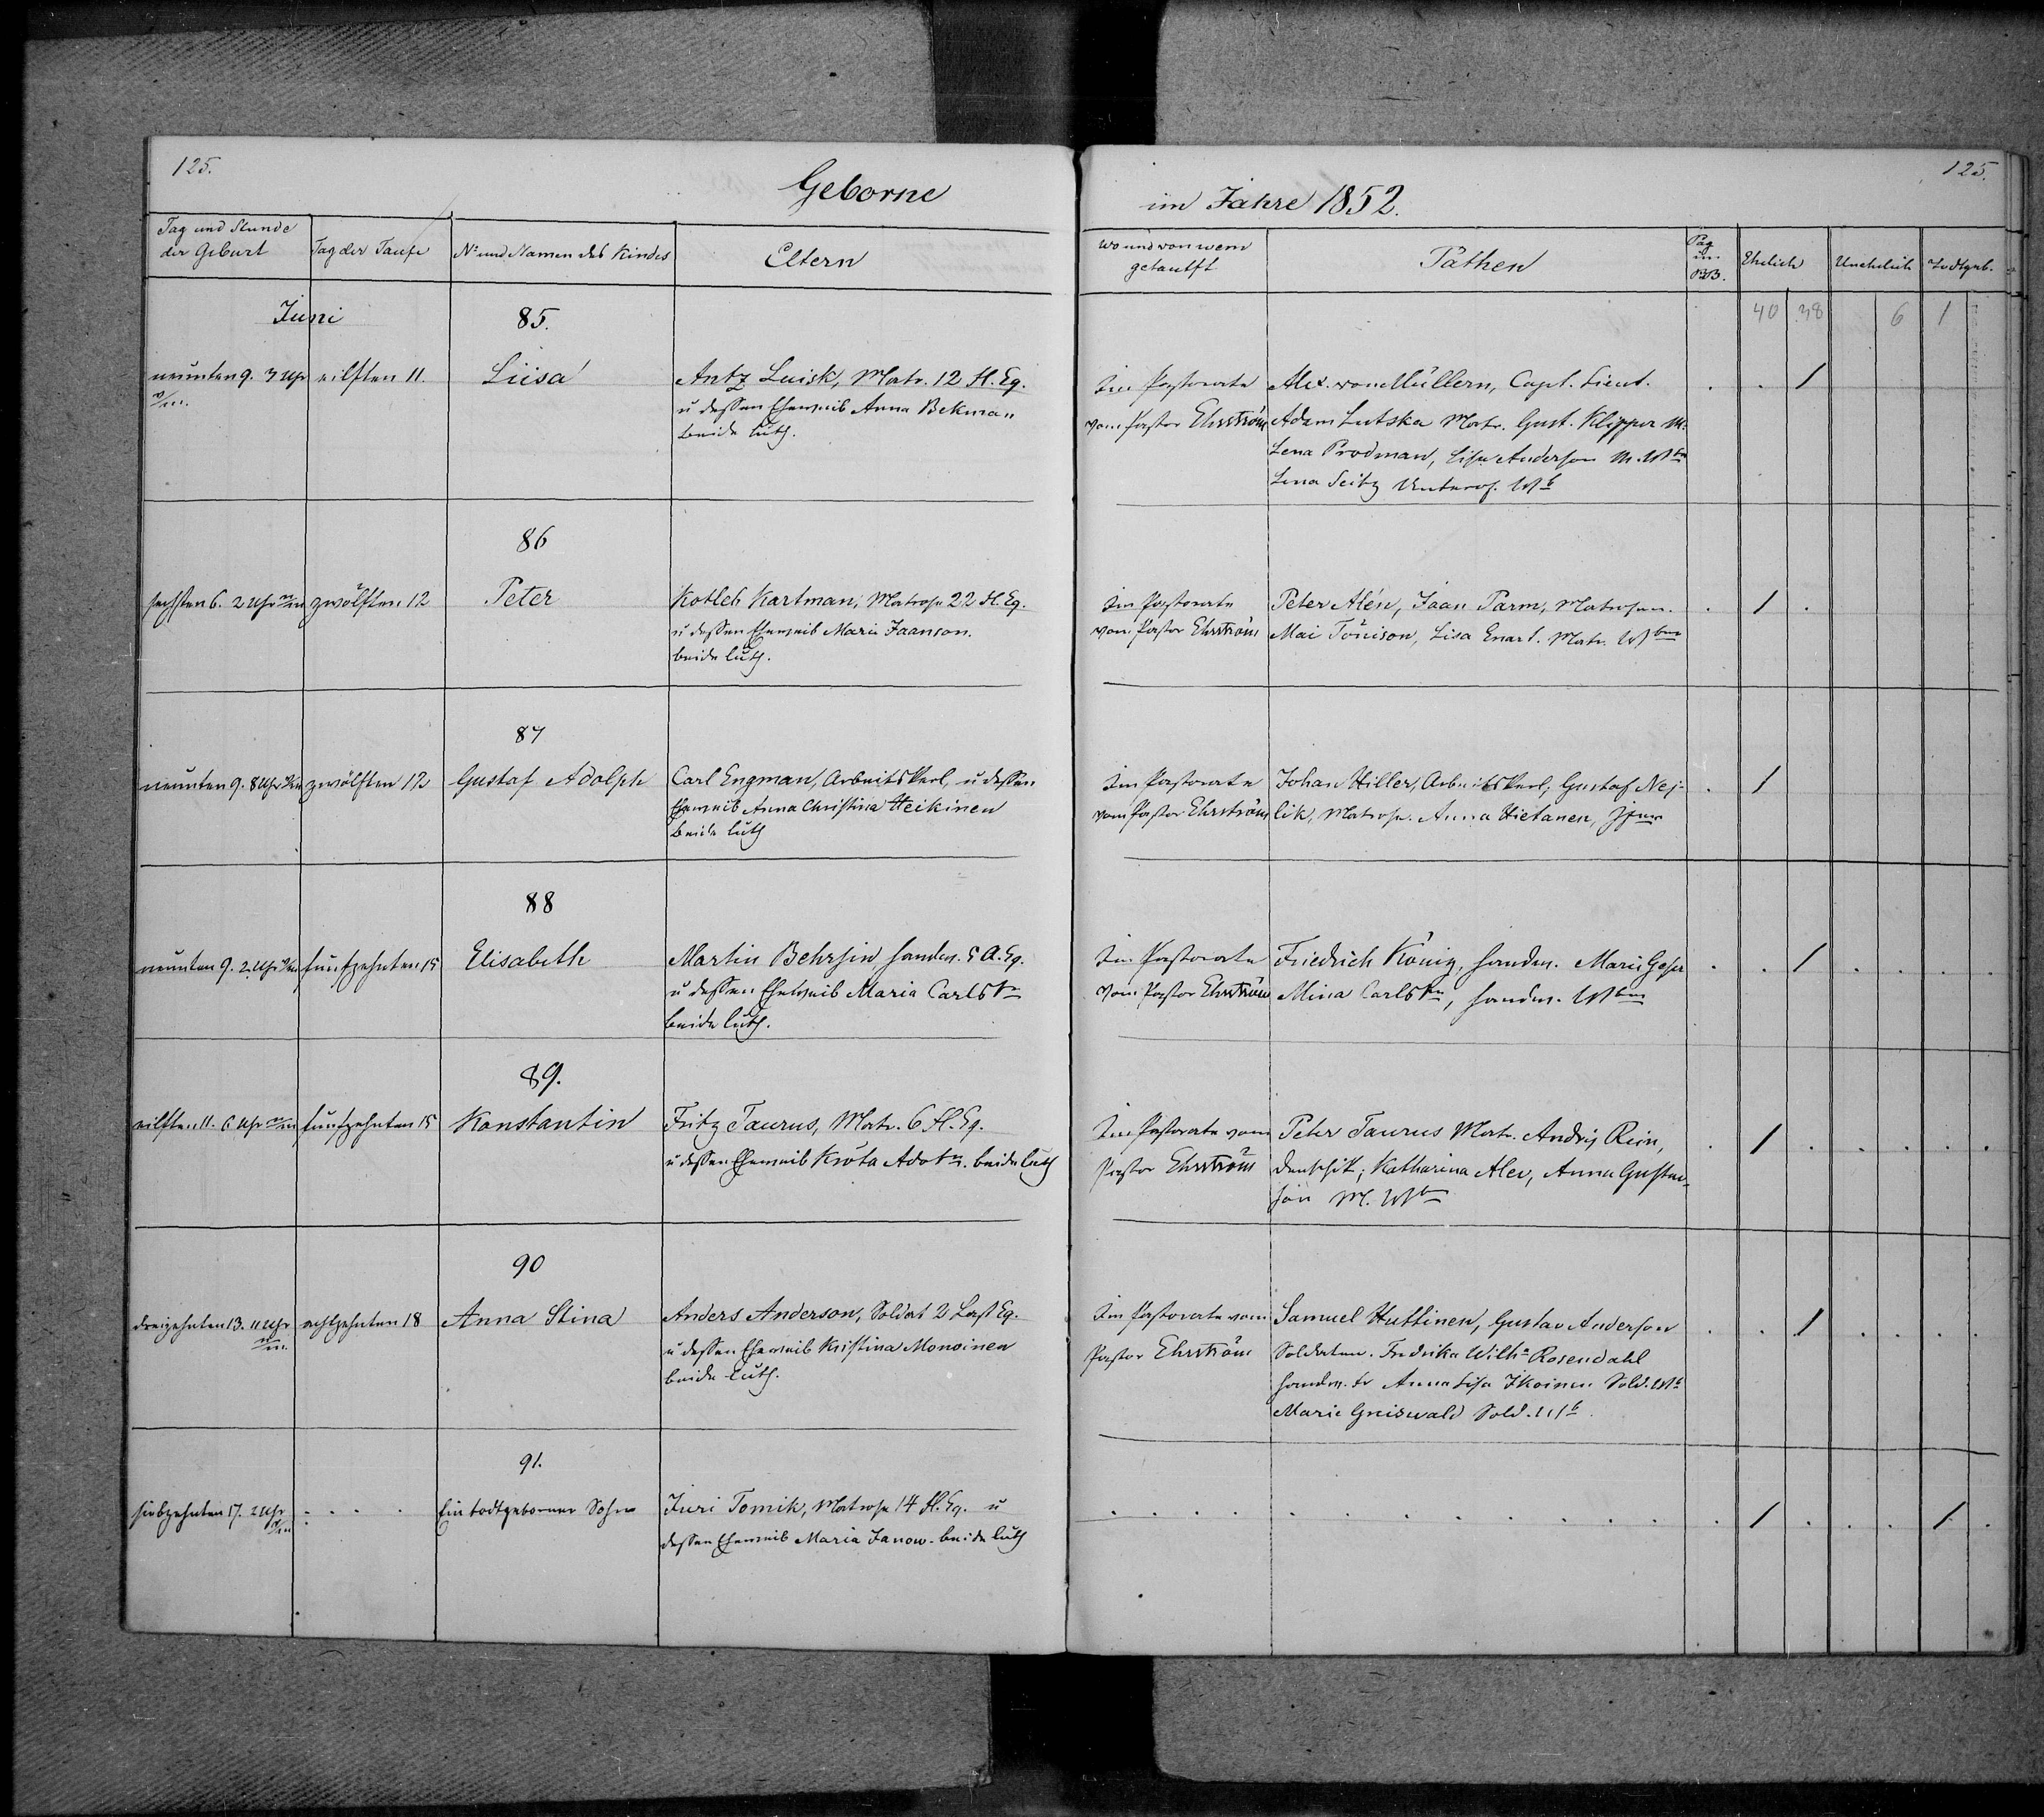 125.
Geborne
Tag und Stunde
der Geburt
Tag der Taufe
No und Namen des Kindes
Eltern
Juni
85.
neunten 9. 3 Uhr
v/m.
eilften 11.
Liisa
Antz Luisk, Matr. 12 Fl. Eq.
u dessen Eheweib Anna Bekman
beide luth.
86
sechsten 6. 2 Uhr n/m
zwölften 12
Peter
Kotleb Kartman, Matrose 22 Fl. Eq.
u dessen Eheweib Marie Jaanson.
beide luth.
87
neunten 9. 8 Uhr
zwölften 12
Gustaf Adolph
Carl Engman, Arbeitskerl, u dessen
Eheweib Anna Christina Heikinen
beide luth
88
neunten 9. 2 Uhr
fünfzehnten 15
Elisabeth
Martin Behrsin Handw. 5 A. Eq.
u dessen Eheweib Maria Carlstr
beide luth.
89.
eilften 11. 6 Uhr n/m
fünfzehnten 15
Konstantin
Fritz Taurus, Matr. 6 Fl. Eq.
u dessen Eheweib Kröta beide luth
90
dreizehnten 13. 11 Uhr
n/m.
achtzehnten 18
Anna Stina
Anders Anderson, Soldat 2 Last Eq.
u dessen Eheweib Kristina Monoinen
beide luth.
91.
siebzehnten 17. 2 Uhr
. . . .
Ein todtgeborner Sohn
Juri Tomik, Matrose 14 Fl. Eq. u
dessen Eheweib Maria Janow. beide luth
125.
im Jahre 1852.
Wo und von wem
getauft
Pathen
Pag
im
PB.
Ehelich
Unehelich
Todtgeb.
40 38 6 1
Im Pastorate
vom Pastor Ehrström
Alex. von Müllern, Capt. Lieut.
Adam Lutska Matr. Gust. Klipper M.
Lena Prodman, Lisa Anderson M. Wbr
Lena Seitz Unterof. Wb
. . 1
Im Pastorate
vom Pastor Ehrström
Peter Alén, Jaan Parm, Matrosen.
Mai Tönison, Lisa Enart. Matr. Wbr
. 1 .
Im Pastorate
vom Pastor Ehrström
Johan Hiller, Arbeitskerl, Gustaf Nej-
lik, Matrose. Anna Hietanen, Jfer
. 1
Im Pastorate
vom Pastor Ehrström
Friedrich König, Handw. Marie
Mina Carlstr, Handw. Wbr
. . 1 . . . .
Im Pastorate vom
Pastor Ehrström
Peter Taurus Matr. Andrij Rein,
Denschik; Katharina Alev, Anna Gustav-
son M. Wbr
. 1 . . . . .
Im Pastorate vom
Pastor Ehrström
Samuel Huttinen, Gustav Anderson
Soldaten. Fredrika Wilh. Rosendahl
Handw. tr Anna Lisa Ikoinen Sold. Wb
Marie Greiswald Sold. Wb.
. . 1 . . . .
. . . . . . . . . . . . . 1 . . . 1 .